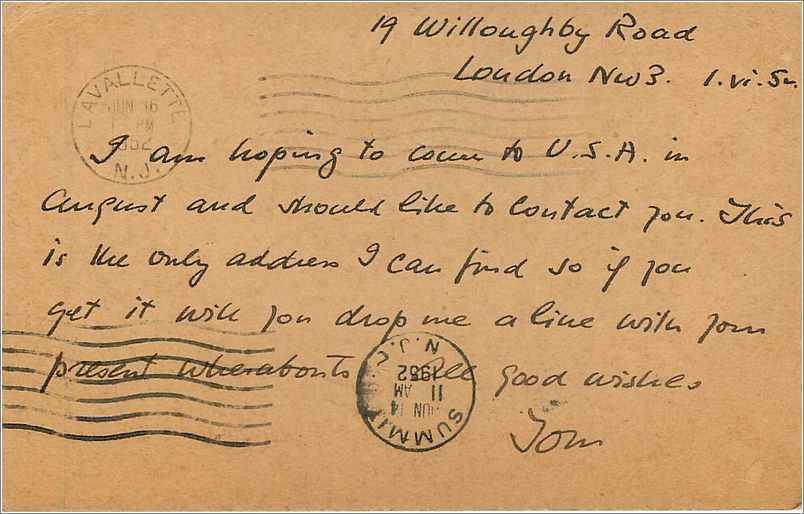 19 Willoughby Road
London NW3. 1.vi.52.
LAVALLETTE
JUN 16
PM
1952
N.J.
I am hoping to come to U.S.A. in
August and should like to contact you. This
is the only address I can find so if you
get it will you drop me a line with your
present whereabouts All good wishes
Tom
SUMMIT
JUN 14
11 AM
1952
N.J.